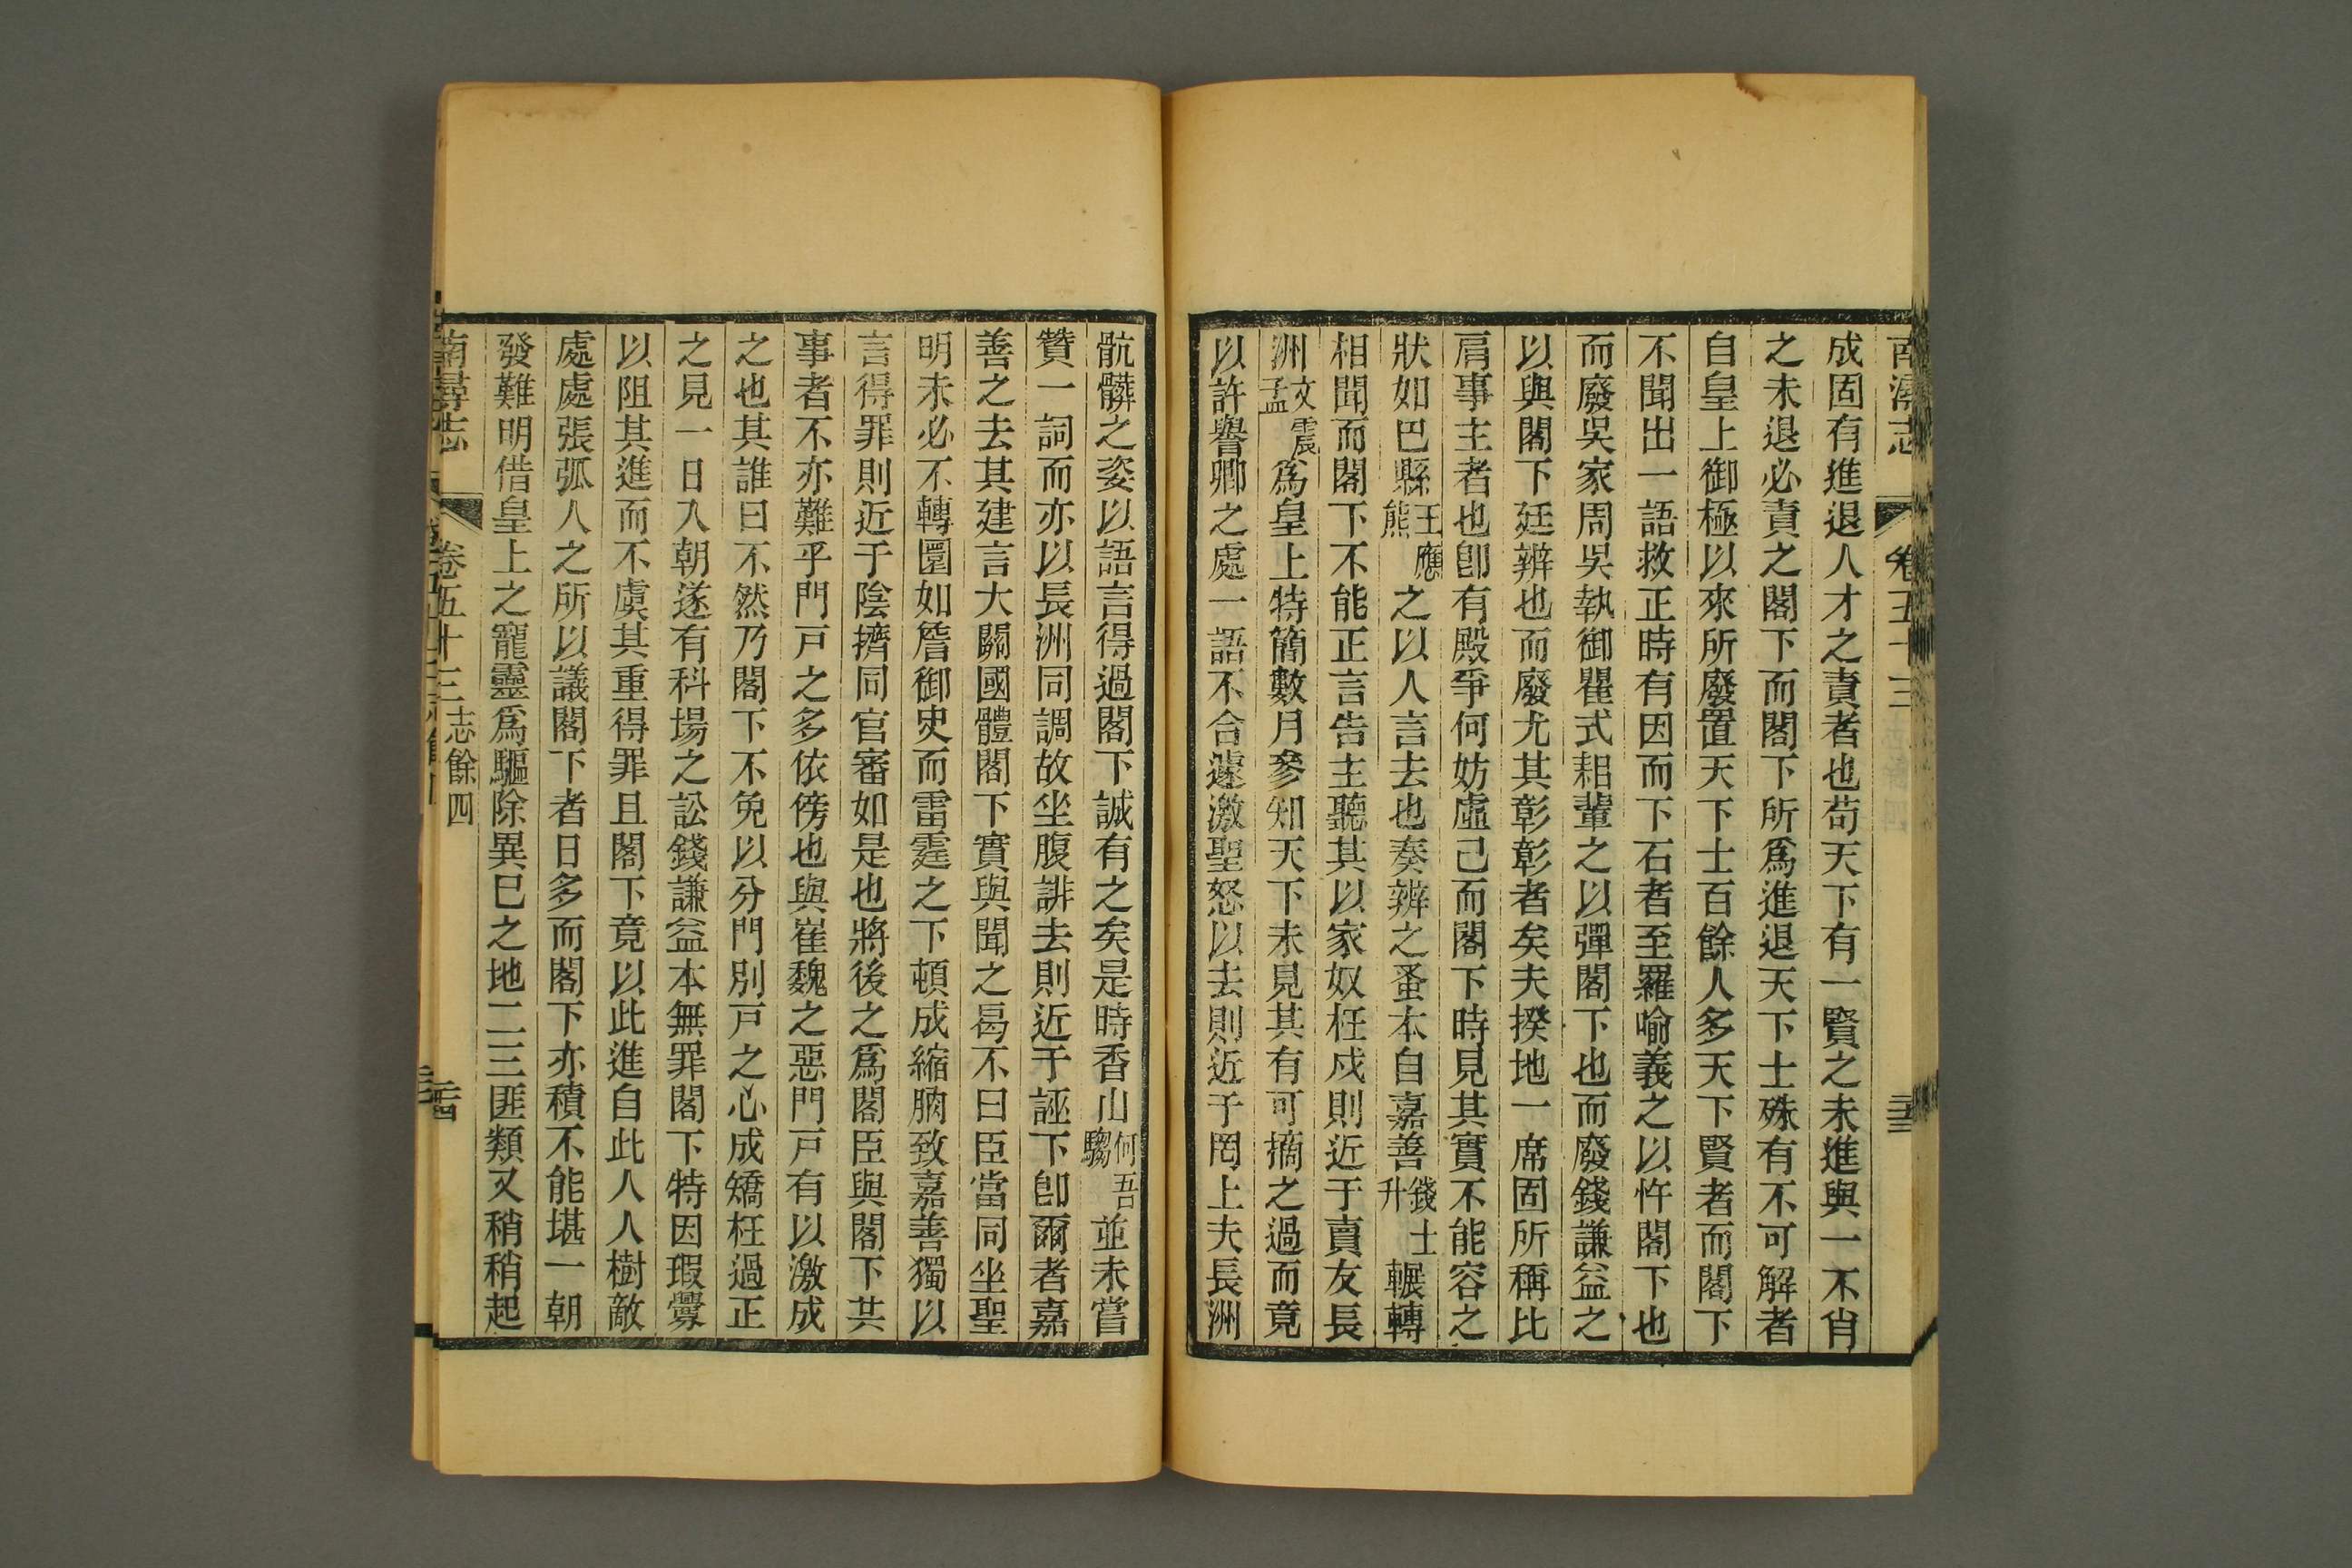 南潯志 卷五十三
成固有進退人才之責者也苟天下有一賢之未進與一不肖
之未退必責之閣下而閣下所爲進退天下士殊有不可解者
自皇上御極以來所廢置天下士百餘人多天下賢者而閣下
不聞出一語救正時有因而下石者至羅喻義之以忤閣下也
而廢吳家周吳執御瞿式耜輩之以彈閣下也而廢錢謙益之
以與閣下廷辨也而廢尤其彰彰者矣夫揆地一席固所稱比
肩事主者也卽有殿爭何妨虛己而閣下時見其實不能容之
狀如巴縣王應熊之以人言去也奏辨之蚤本自嘉善錢士升輾轉
相聞而閣下不能正言告主聽其以家奴枉戍則近于賣友長
洲文震孟爲皇上特簡數月參知天下未見其有可摘之過而竟
以許譽卿之處一語不合遽激聖怒以去則近于罔上夫長洲
骯髒之姿以語言得過閣下誠有之矣是時香山何吾騶並未嘗
贊一詞而亦以長洲同調故坐腹誹去則近于誣下卽爾者嘉
善之去其建言大關國體閣下實與聞之曷不曰臣當同坐聖
明未必不轉圜如詹御史而雷霆之下頓成縮朒致嘉善獨以
言得罪則近于陰擠同官審如是也將後之爲閣臣與閣下共
事者不亦難乎門戸之多依傍也與崔魏之惡門戸有以激成
之也其誰曰不然乃閣下不免以分門別戸之心成矯枉過正
之見一日入朝遂有科場之訟錢謙益本無罪閣下特因瑕釁
以阻其進而不虞其重得罪且閣下竟以此進自此人人樹敵
處處張弧人之所以議閣下者日多而閣下亦積不能堪一朝
發難明借皇上之寵靈爲驅除異已之地二三匪類又稍稍起
南潯志 卷五十三 志餘四